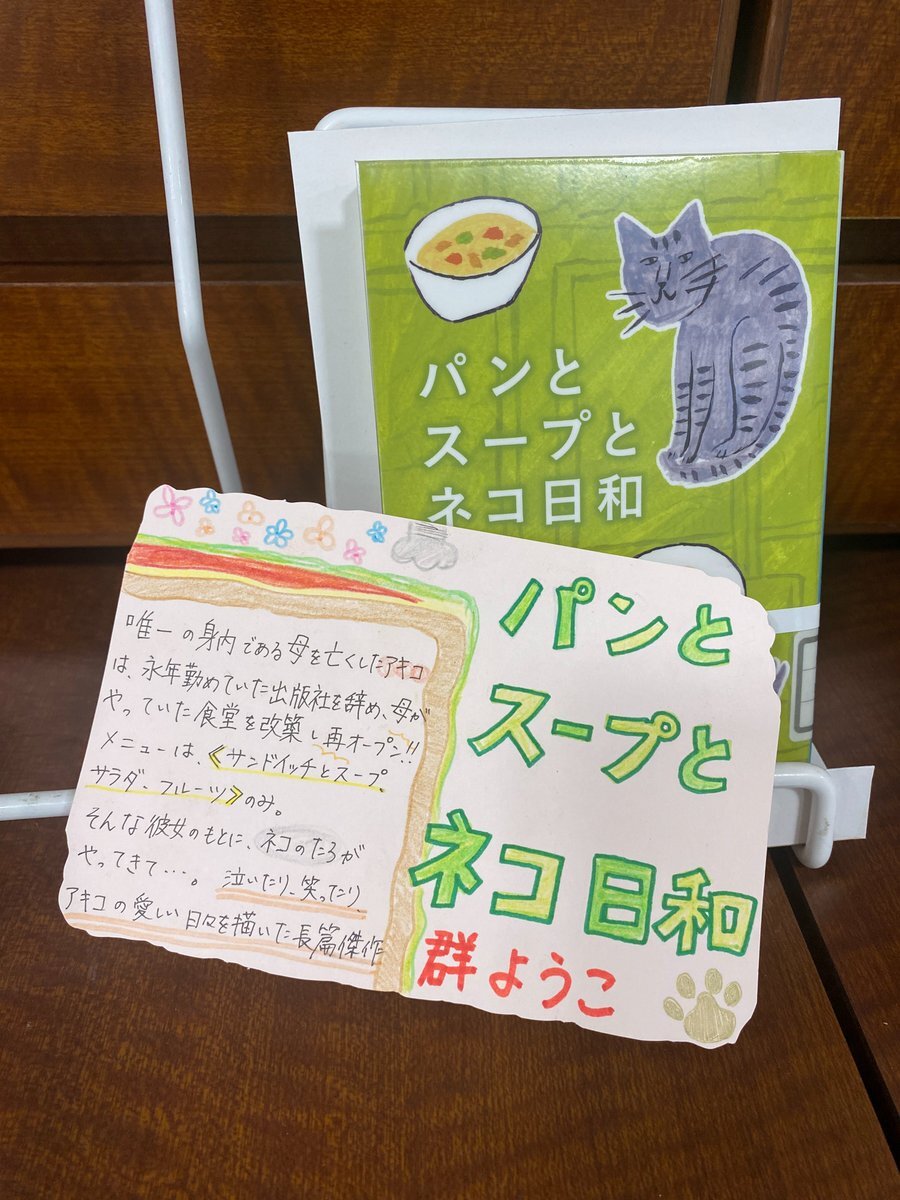 パンと
スープと
ネコ日和
唯一の身内である母を亡くしたアキコ
は、永年勤めていた出版社を辞め、母が
やっていた食堂を改築し再オープン!!
メニューは、《サンドイッチとスープ、
サラダ、フルーツ》のみ。
そんな彼女のもとに、ネコのたろが
やってきて…。泣いたり、笑ったり、
アキコの愛しい日々を描いた長篇傑作
パンと
スープと
ネコ日和
群ようこ